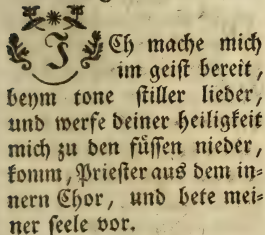 ICh mache mich
im geist bereit,
beym tone stiller lieder,
und werfe deiner heiligkeit
mich zu den füssen nieder,
komm, Priester aus dem in-
nern Chor, und bete mei-
ner seele vor.